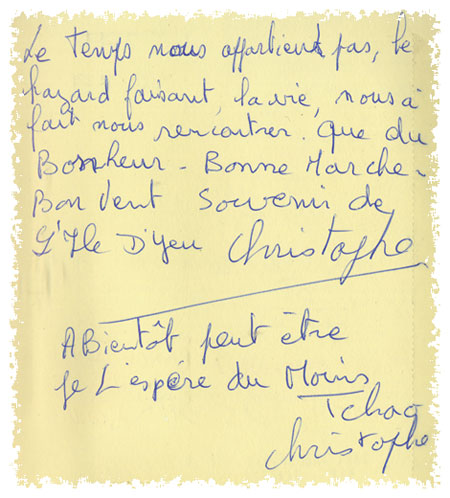 Le Temps nous appartient pas, le
hazard faisant, la vie, nous à
fait nous rencontrer. Que du
Bonheur - Bonne Marche -
Bon Vent Souvenir de
L'Ile D'Yeu Christophe
A Bientôt peut être
Je L'espère du Moins
Tchao
Christophe